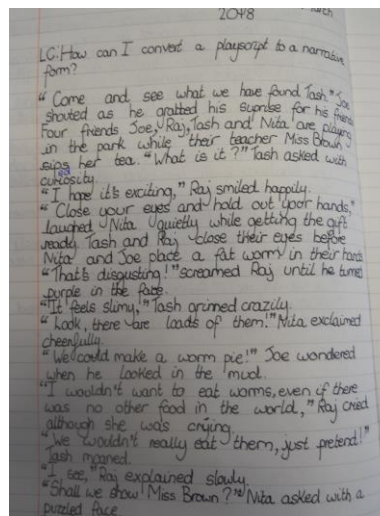 March
2048
LC: How can I convert a playscript to a narrative
form?
"Come and see what we have found Tash." Joe
shouted as he grabbed his suprise for his friends
Four friends Joe, Raj, Tash and Nita are playing
in the park while their teacher Miss Brown
sips her tea. "What is it?" Tash asked with
curiosity.
"I hope it's exciting," Raj smiled happily.
"Close your eyes and hold out your hands,"
laughed Nita quietly while getting the gift
ready. Tash and Raj close their eyes before
Nita and Joe place a fat worm in their hands
"That's disgusting!" screamed Raj until he turned
purple in the face.
"It feels slimy," Tash grinned crazily.
"Look, there are loads of them!" Nita exclaimed
cheerfully.
"We could make a worm pie!" Joe wondered
when he looked in the mud.
"I wouldn't want to eat worms, even if there
was no other food in the world," Raj cried
although she was crying.
"We wouldn't really eat them, just pretend!"
Tash moaned.
"I see," Raj explained slowly.
"Shall we show Miss Brown?" Nita asked with a
puzzled face